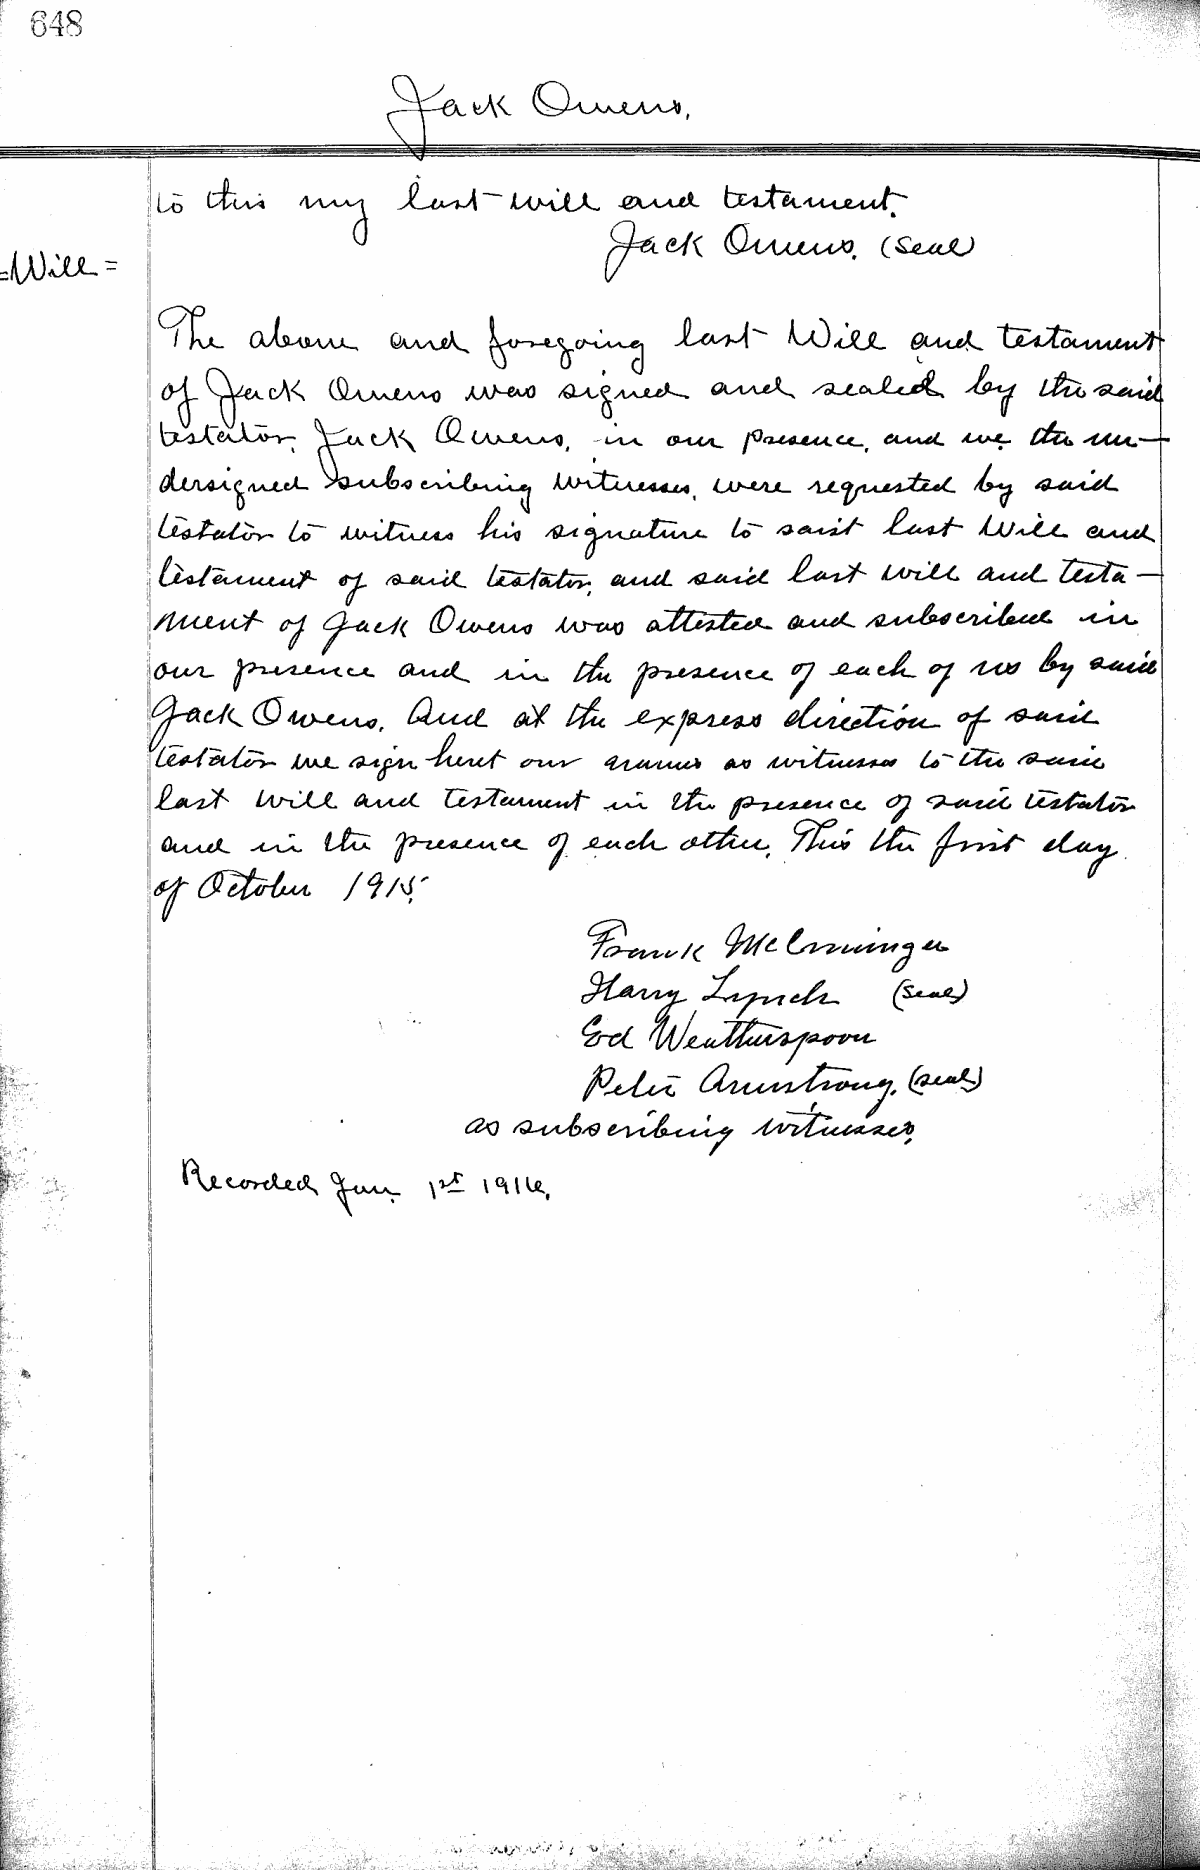 648
Jack Owens.
to this my last will and testament.
Jack Owens. (Seal)
=Will=
The above and foregoing last Will and testament
of Jack Owens was signed and sealed by the said
testator, Jack Owens, in our presence, and we the un-
dersigned subscribing witnesses, were requested by said
testator to witness his signature to said last Will and
testament of said testator, and said last will and testa-
ment of Jack Owens was attested and subscribed in
our presence and in the presence of each of us by said
Jack Owens. And at the express direction of said
testator we sign heret our names as witnesses to the said
last will and testament in the presence of said testator
and in the presence of each other. This the first day
of October 1915.
Frank
Harry Lynch (Seal)
Ed Weatherspoon
Peter Armstrong. (seal)
as subscribing witnesses.
Recorded Jan. 1st 1916.